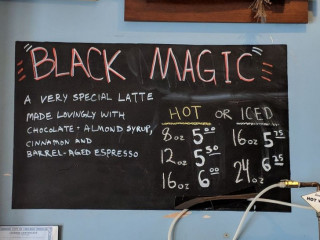 BLACK MAGIC
A VERY SPECIAL LATTE
MADE LOVINGLY WITH
CHOCOLATE-ALMOND SYRUP,
CINNAMON AND
BARREL-AGED ESPRESSO
HOT OR ICED
8oz 5⁰⁰ 16oz 5⁷⁵
12oz 5⁵⁰ 24oz 6²⁵
16oz 6⁰⁰